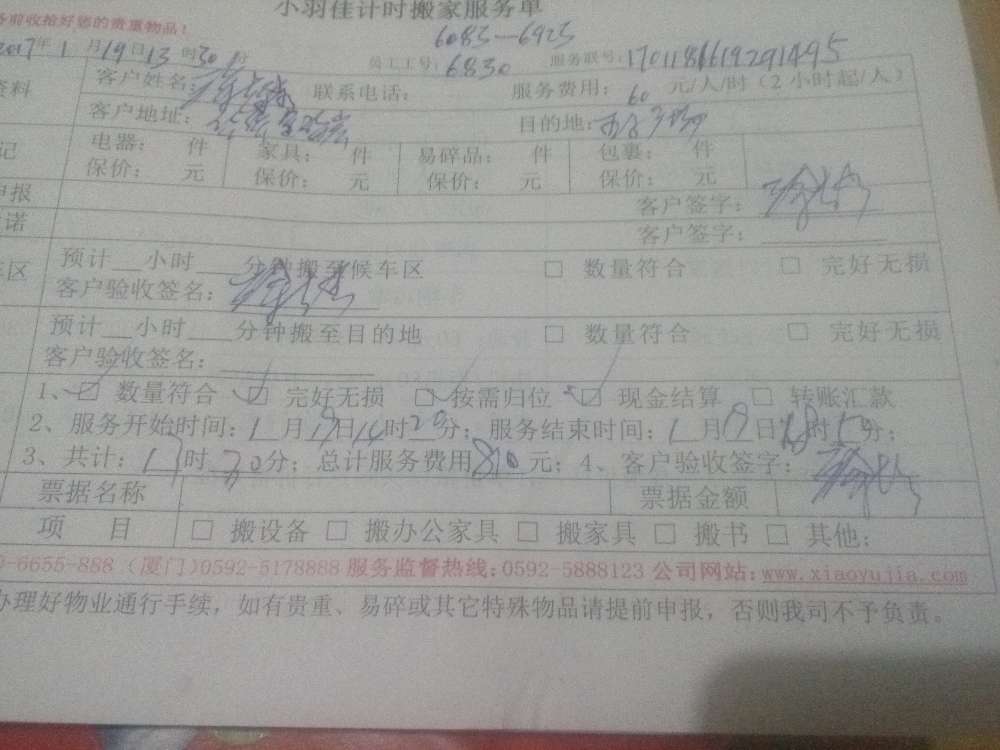 小羽佳计时搬家服务单
务前收拾好您的贵重物品！
6083—6925
2017年1月19日13时30分 员工工号：6830 服务联号：1701186619291495
资料 客户姓名： 联系电话： 服务费用：60元/人/时（2小时起/人）
客户地址： 目的地：
记 电器： 件 家具： 件 易碎品： 件 包裹： 件
保价： 元 保价： 元 保价： 元 保价： 元
申报 客户签字：
诺 客户签字：
车区 预计__小时___分钟搬至候车区 □ 数量符合 □ 完好无损
客户验收签名：
预计__小时___分钟搬至目的地 □ 数量符合 □ 完好无损
客户验收签名：
1、☑ 数量符合 ☑ 完好无损 ☑ 按需归位 ☑ 现金结算 □ 转账汇款
2、服务开始时间：1月19日14时20分；服务结束时间：1月19日18时50分；
3、共计：13时30分；总计服务费用810元；4、客户验收签字：
票据名称 票据金额
项 目 □ 搬设备 □ 搬办公家具 □ 搬家具 □ 搬书 □ 其他：
0-6655-888（厦门）0592-5178888 服务监督热线：0592-5888123 公司网站：www.xiaoyujia.com
办理好物业通行手续，如有贵重、易碎或其它特殊物品请提前申报，否则我司不予负责。